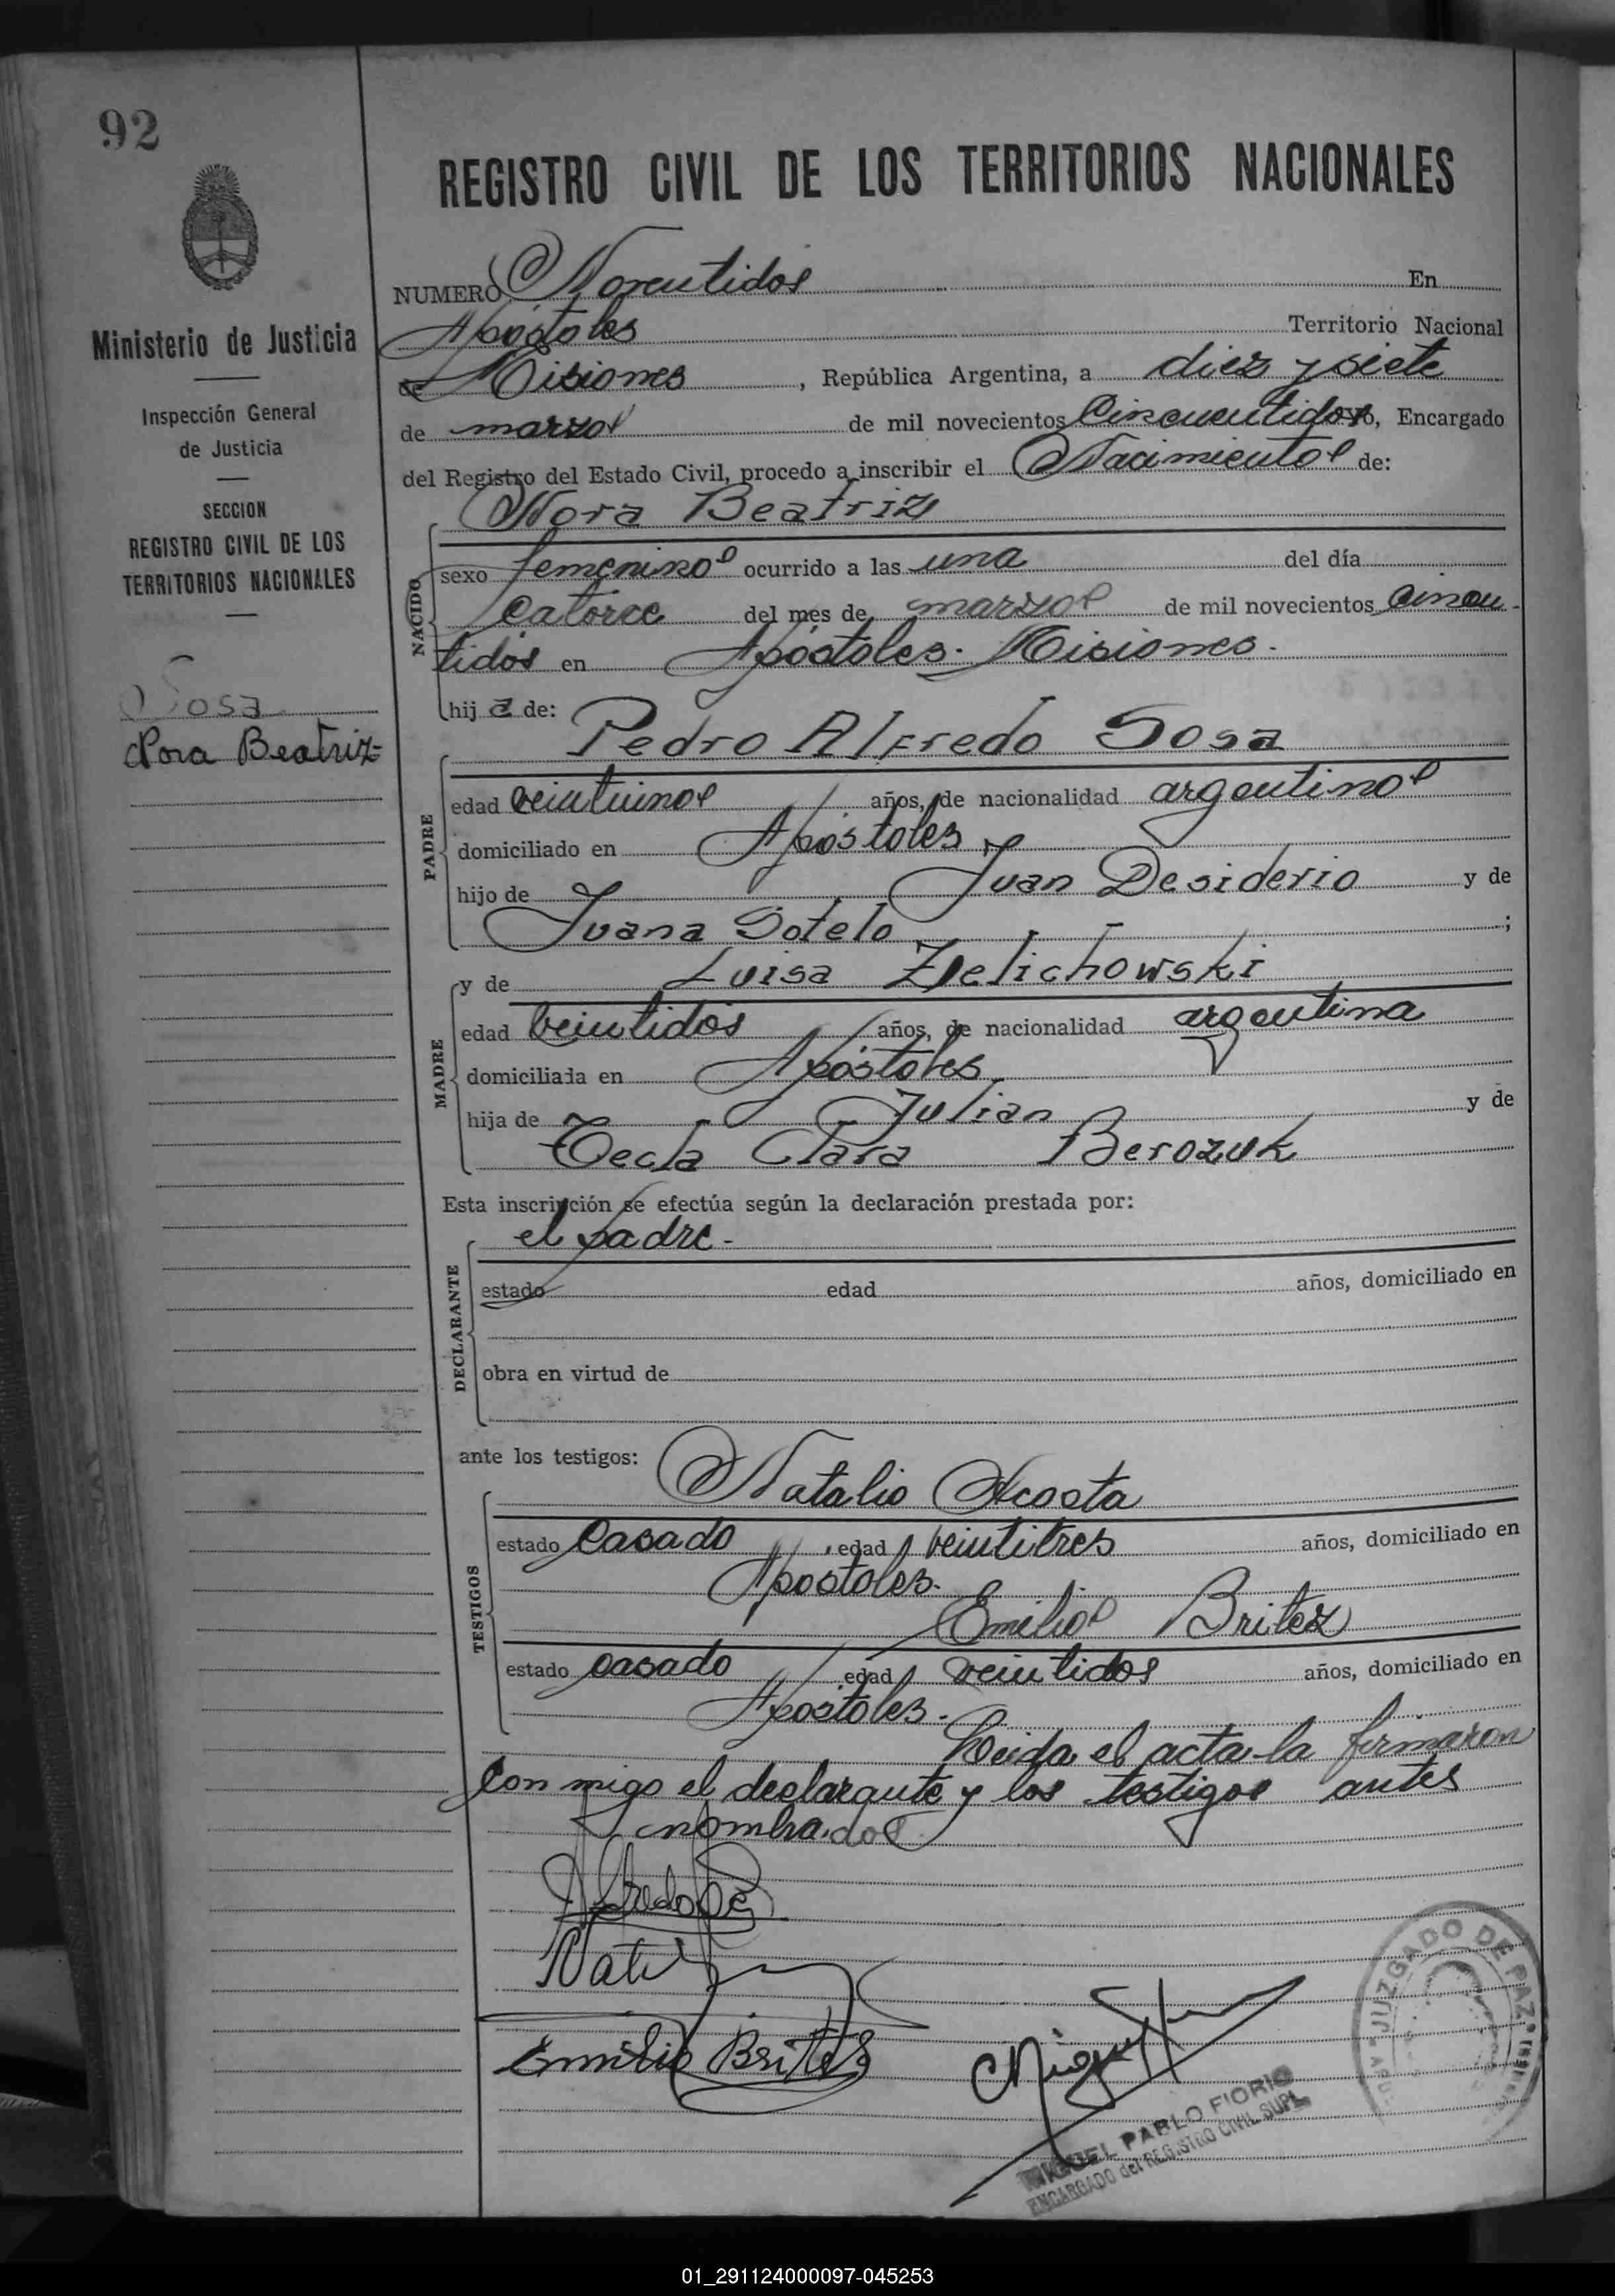 92
REGISTRO CIVIL DE LOS TERRITORIOS NACIONALES
Ministerio de Justicia
Inspección General
de Justicia
SECCION
REGISTRO CIVIL DE LOS
TERRITORIOS NACIONALES
Sosa
Nora Beatriz
NUMERO Noventidos En
Apóstoles Territorio Nacional
de Misiones, República Argentina, a diez y siete
de marzo de mil novecientos Cincuentidos yo, Encargado
del Registro del Estado Civil, procedo a inscribir el Nacimiento de:
Nora Beatriz
NACIDO
sexo femenino ocurrido a las una del día
Catorce del mes de marzo de mil novecientos Cincu
tidós en Apóstoles. Misiones.
hij a de:
Pedro Alfredo Sosa
PADRE
edad veintiuno años, de nacionalidad argentino
domiciliado en Apóstoles
hijo de Juan Desiderio y de
Juana Sotelo ;
MADRE
y de Luisa Zelichowski
edad veintidós años, de nacionalidad argentina
domiciliada en Apóstoles
hija de Julian y de
Tecla Clara Berozuk
Esta inscripción se efectúa según la declaración prestada por:
el padre.-
DECLARANTE
estado edad años, domiciliado en
obra en virtud de
ante los testigos:
Natalio Acosta
TESTIGOS
estado Casado edad veintitres años, domiciliado en
Apostoles.
Emilio Britez
estado casado edad veintidos años, domiciliado en
Apostoles.-
Leida el acta la firmaron
con migo el declarante y los testigos antes
nombrados
Emilio Britez
JUZGADO DE PAZ
MIGUEL PABLO FIORIO
ENCARGADO del REGISTRO CIVIL SUPL.
01_291124000097-045253